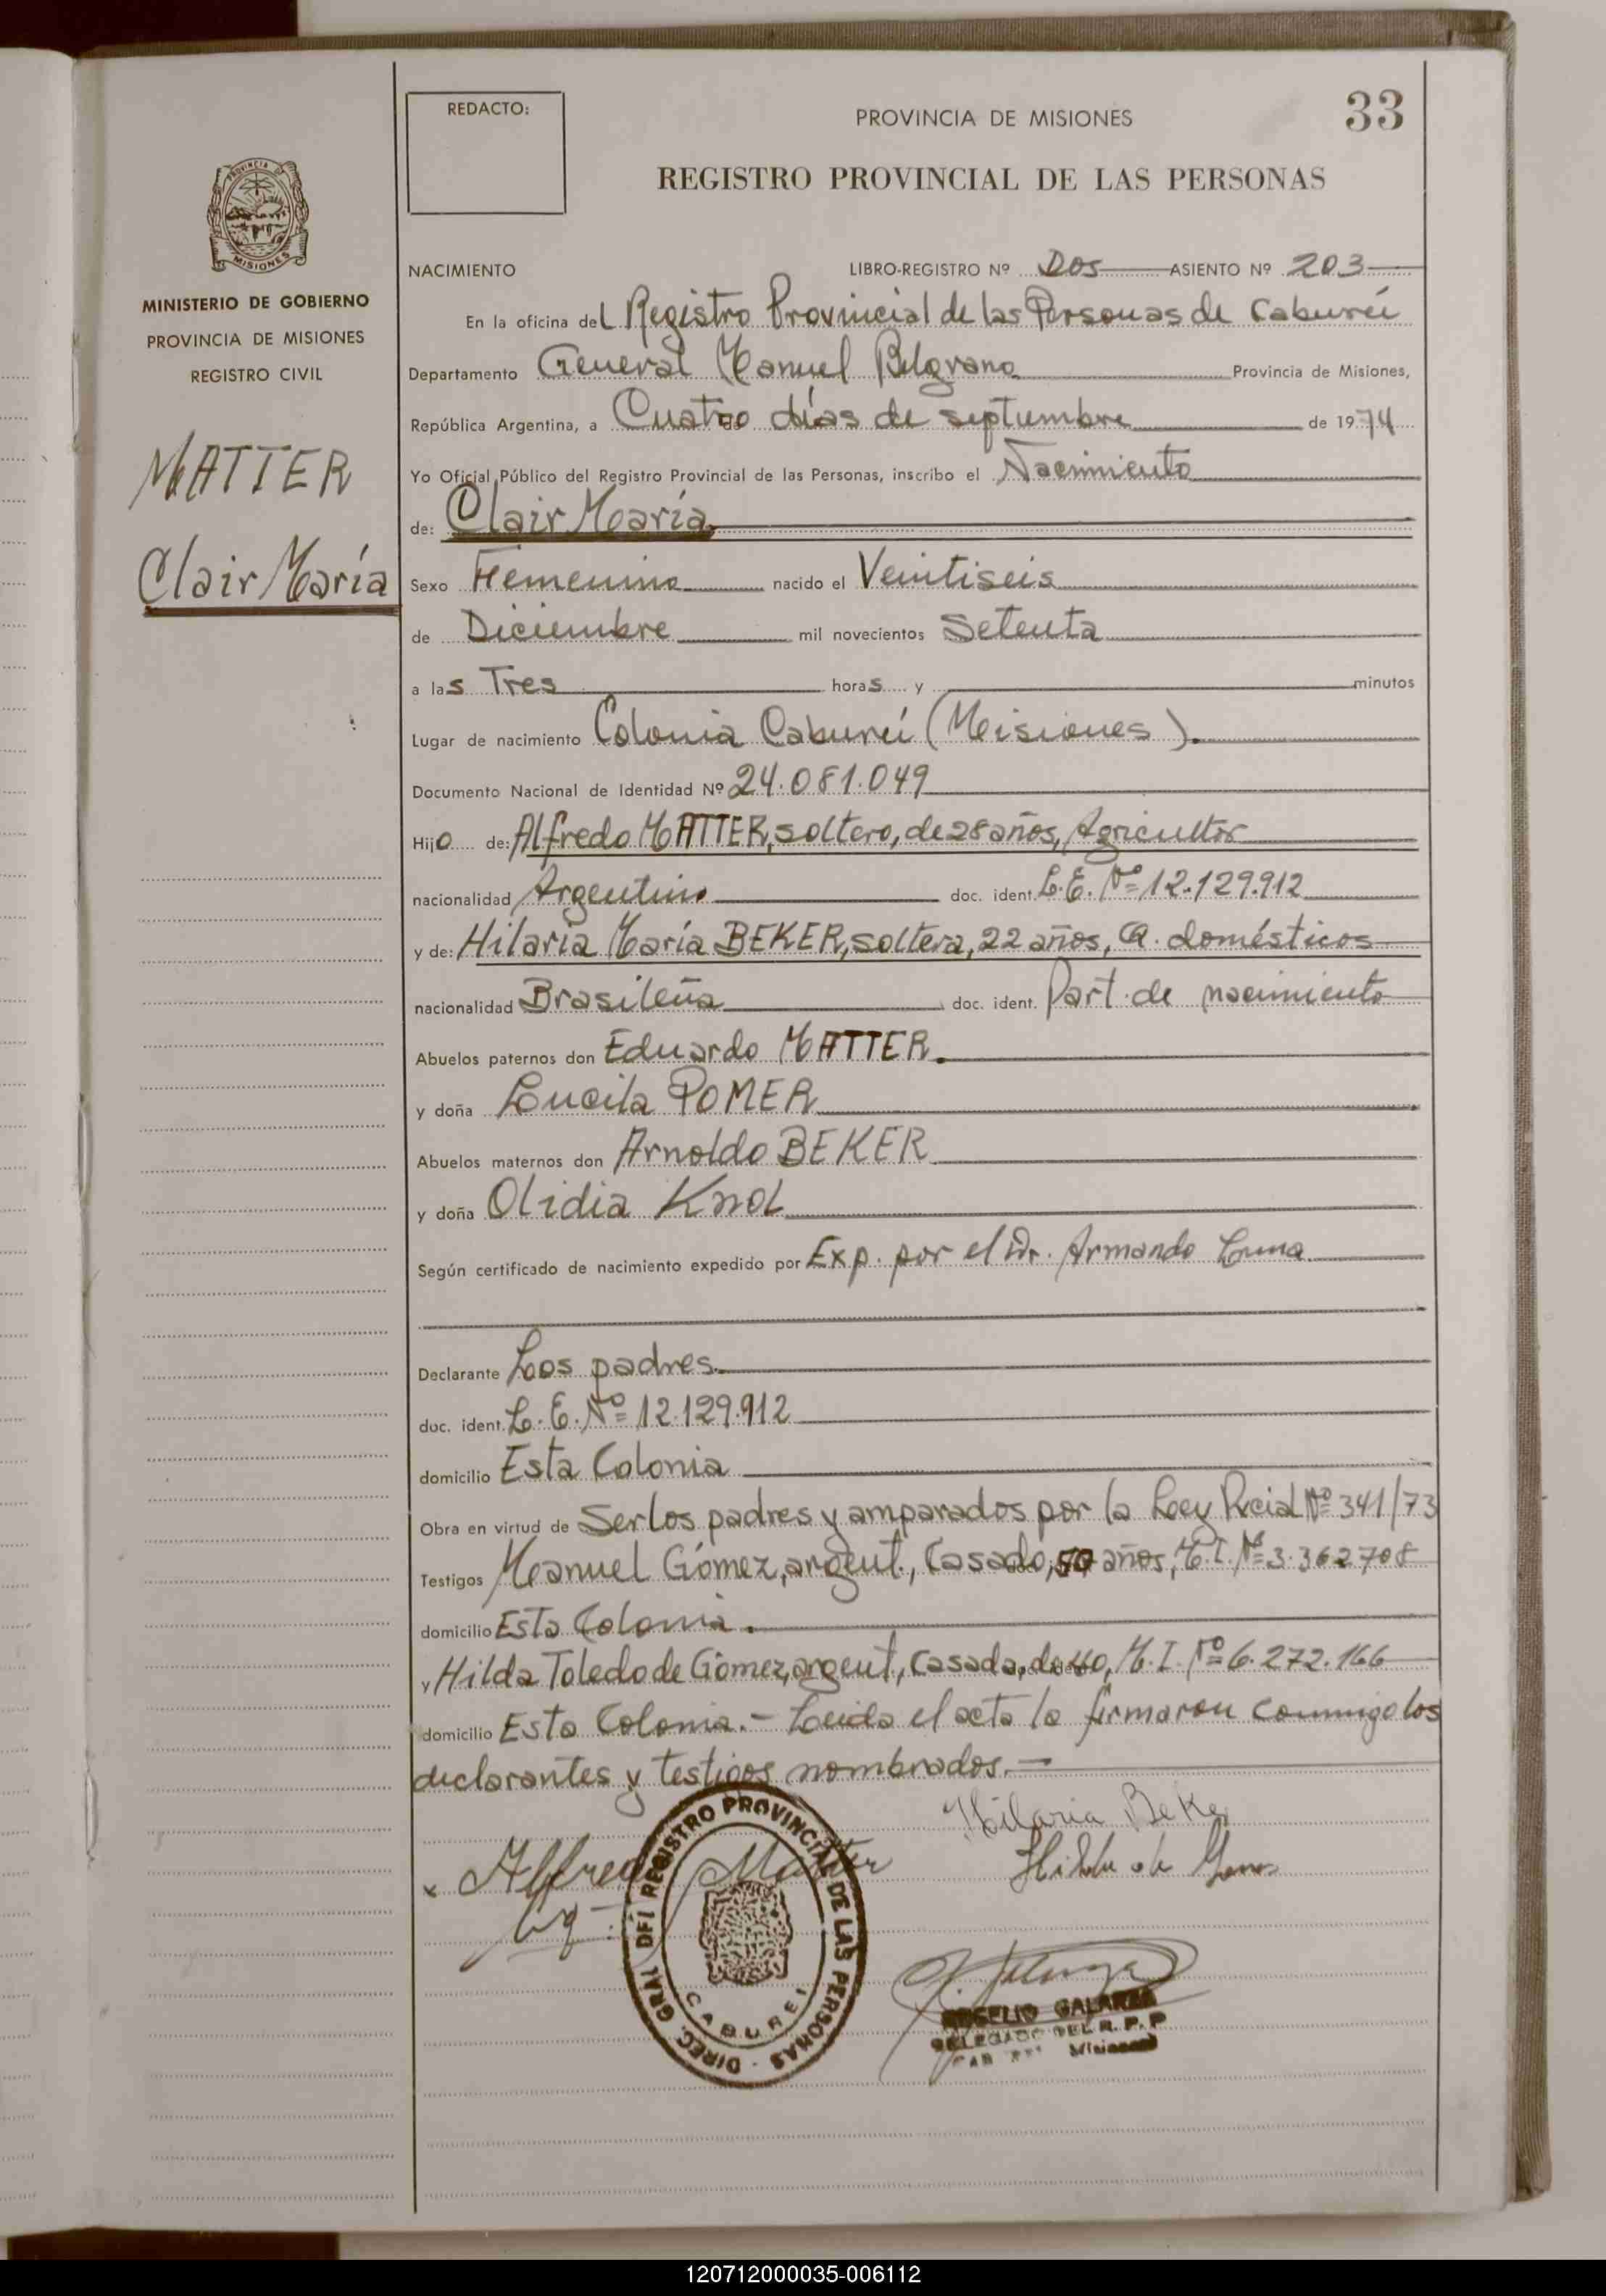 REDACTO:
PROVINCIA DE MISIONES
33
REGISTRO PROVINCIAL DE LAS PERSONAS
PROVINCIA
MISIONES
MINISTERIO DE GOBIERNO
PROVINCIA DE MISIONES
REGISTRO CIVIL
MATTER
Clair María
NACIMIENTO LIBRO-REGISTRO Nº Dos ASIENTO Nº 203
En la oficina del Registro Provincial de las Personas de Cabureí
Departamento General Manuel Belgrano Provincia de Misiones,
República Argentina, a Cuatro días de septiembre de 1974
Yo Oficial Público del Registro Provincial de las Personas, inscribo el Nacimiento
de: Clair María
Sexo Femenino nacido el Veintiseis
de Diciembre mil novecientos Setenta
a las Tres horas y minutos
Lugar de nacimiento Colonia Cabureí (Misiones).
Documento Nacional de Identidad Nº 24.081.049
Hijo de: Alfredo MATTER, soltero, de 28 años, Agricultor
nacionalidad Argentino doc. ident. L.E. Nº 12.129.912
y de: Hilaria María BEKER, soltera, 22 años, Q. domésticos
nacionalidad Brasileña doc. ident. Part. de nacimiento
Abuelos paternos don Eduardo MATTER.
y doña Lucila POMER
Abuelos maternos don Arnoldo BEKER
y doña Olidia Knol
Según certificado de nacimiento expedido por Exp. por el Dr. Armando Luna
Declarante Los padres
doc. ident. L.E. Nº 12.129.912
domicilio Esta Colonia
Obra en virtud de Ser los padres y amparados por la Ley Pcial Nº 341/73
Testigos Manuel Gómez, argent., Casado, 50 años, M.I. Nº 3.362708
domicilio Esta Colonia.
y Hilda Toledo de Gómez, argent., Casada, de 40, M.I. Nº 6.272.166
domicilio Esta Colonia.- Leida el acta la firmaron conmigo los
declarantes y testigos nombrados.-
Hilaria Beker
x Alfredo Matter
Hilda de Gomez
DIREC. GRAL DEL REGISTRO PROVINCIAL DE LAS PERSONAS
CABUREI
ROGELIO GALARZA
DELEGADO DEL R. P. P
Misiones
120712000035-006112